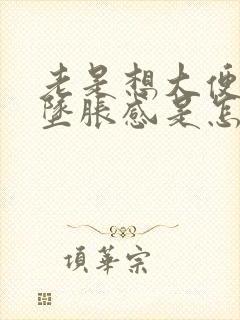 老是想大便
坠胀感是怎
項華宗